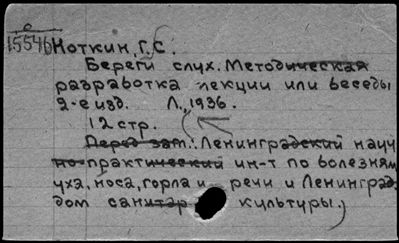 о
15546 Ноткин, Г.С.
Береги слух. Методическая
разработка лекции или беседы
2-е изд. Л., 1936.
12 стр.
Перед заг.: Ленинградский науч
но-практический ин-т по болезням
уха, носа, горла и речи и Ленинград.
дом санитар культуры.)